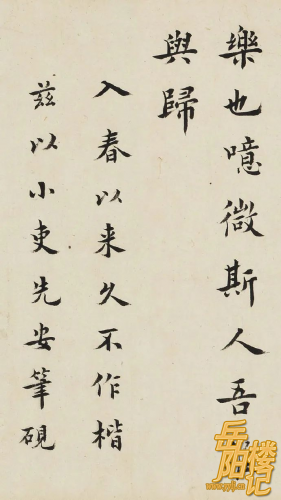 樂也噫微斯人吾
與歸
入春以来久不作楷
茲以小吏先安筆硯
岳阳楼记